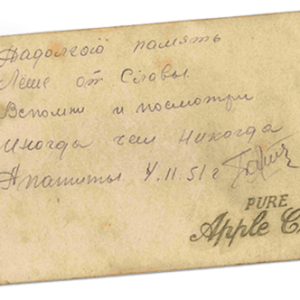 На долгою память
Леше от Славы
Вспомни и посмотри
Иногда чем никогда
Апатиты 4.11.51 г
PURE
Apple